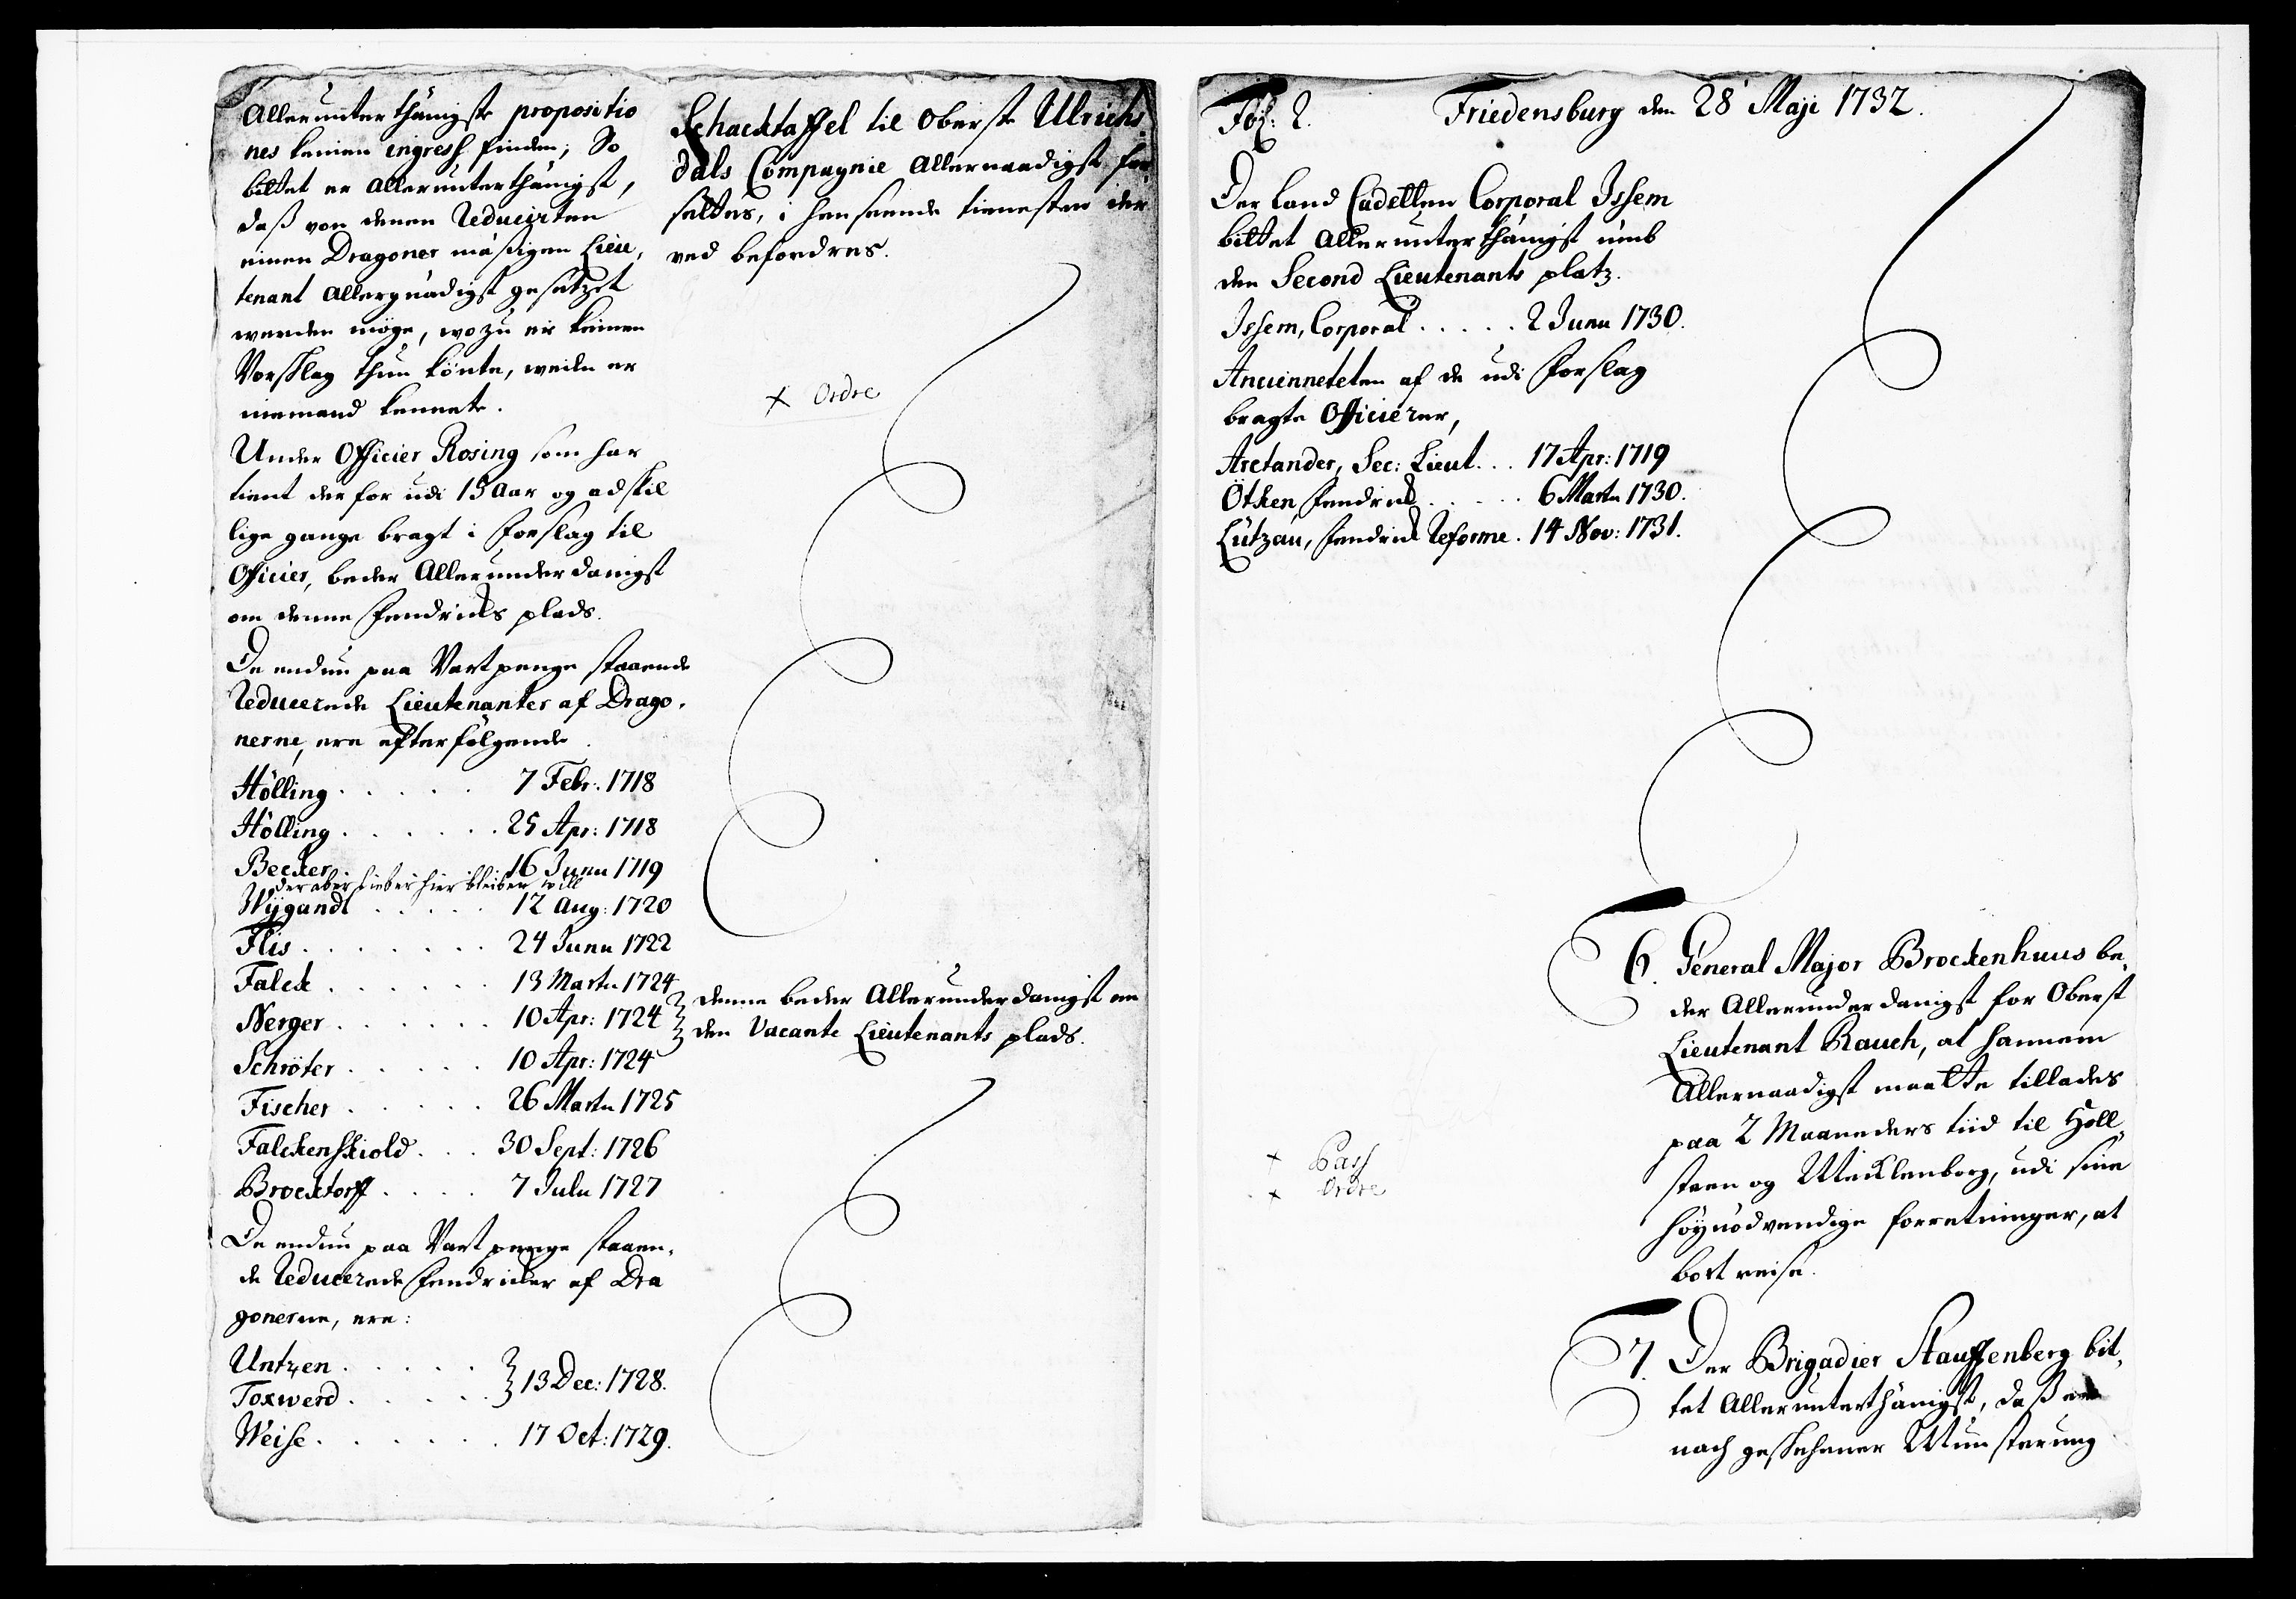 Allerunterthänigste propositio
nes keinen ingress finden; So
bittet er Allerunterthänigst,
daß von denen Reducirten
einen Dragoner mäßigen Lieu,
tenant Allergnädigst gesetzet
werden möge, wozu er keinen
Vorschlag thun könte, weiln er
niemand kennete.
Under Officier Rosing som har
tient der for udi 15 Aar og adskil
lige gange bragt i forslag til
Officier, beder Allerunderdanigst
om denne Fendricks plads.
De endnu paa Vartpenge staaende
Reducerede Lieutenanter af Drago,
nerne, ere efterfölgende.
Hölling . . . . . 7 Febr: 1718
Hölling . . . . . . 25 Apr: 1718
Becker . . . . 16 Junii 1719
der aber lieber hier bleiben will
Wÿgandt . . . . . 12 Aug: 1720
Flis . . . . . . . 24 Junii 1722
Falck . . . . . . 13 Martii 1724
Nerger . . . . . . 10 Apr: 1724
Schröter . . . . . 10 Apr: 1724
Fischer . . . . . 26 Martii 1725
Falckenskiold . . . 30 Sept: 1726
Brocktorff . . . . 7 Julii 1727
De endnu paa Vartpenge staaen,
de Reducerede Fendricker af Dra
gonerne, ere:
Untzen . . . . .
Toxwerd . . . . . 13 Dec: 1728.
Weise . . . . . . 17 Oct: 1729.
Schacktaffel til Oberste Ulrichs
dals Compagnie Allernaadigst for
settes, i henseende tienesten der
ved befordres.
x Ordre
denne beder Allerunderdanigst om
den Vacante Lieutenants plads.
Fol: 2. Friedensburg den 28 Maji 1732.
Der Land Cadetten Corporal Issem
bittet Allerunterthänigst umb
den Second Lieutenants platz.
Issem, Corporal . . . . . 2 Junii 1730.
Anciennieteten af de udi forslag
bragte Officierer,
Arctander, Sec: Lieut. . . 17 Apr: 1719
Ötken, Fendrick . . . . . 6 Martii 1730.
Lützau, Fendrick Reforme . 14 Nov: 1731.
6. General Major Brockenhuus be,
der Allerunderdanigst for Oberst
Lieutenant Rauch, at hannem
Allernaadigst maatte tillades
paa 2 Maaneders tiid til Holl,
steen og Mecklenborg, udi sine
höÿnödvendige forretninger, at
bort reise.
x Pass
x Ordre
7. Der Brigadier Stauffenberg bit,
tet Allerunterthänigst, daß er
nach geschehener Munsterung